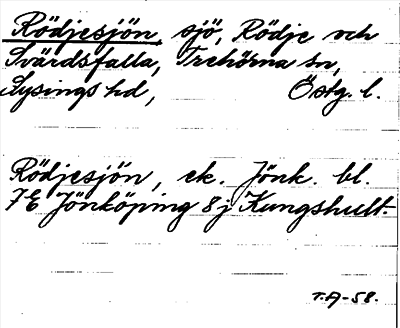 Rödjesjön, sjö, Rödje och
Svärdsfalla, Trehörna sn,
Lysings hd, Östg. l.
Rödjesjön, ek. Jönk. bl.
7E Jönköping 8j Kungshult.
T.A-58.